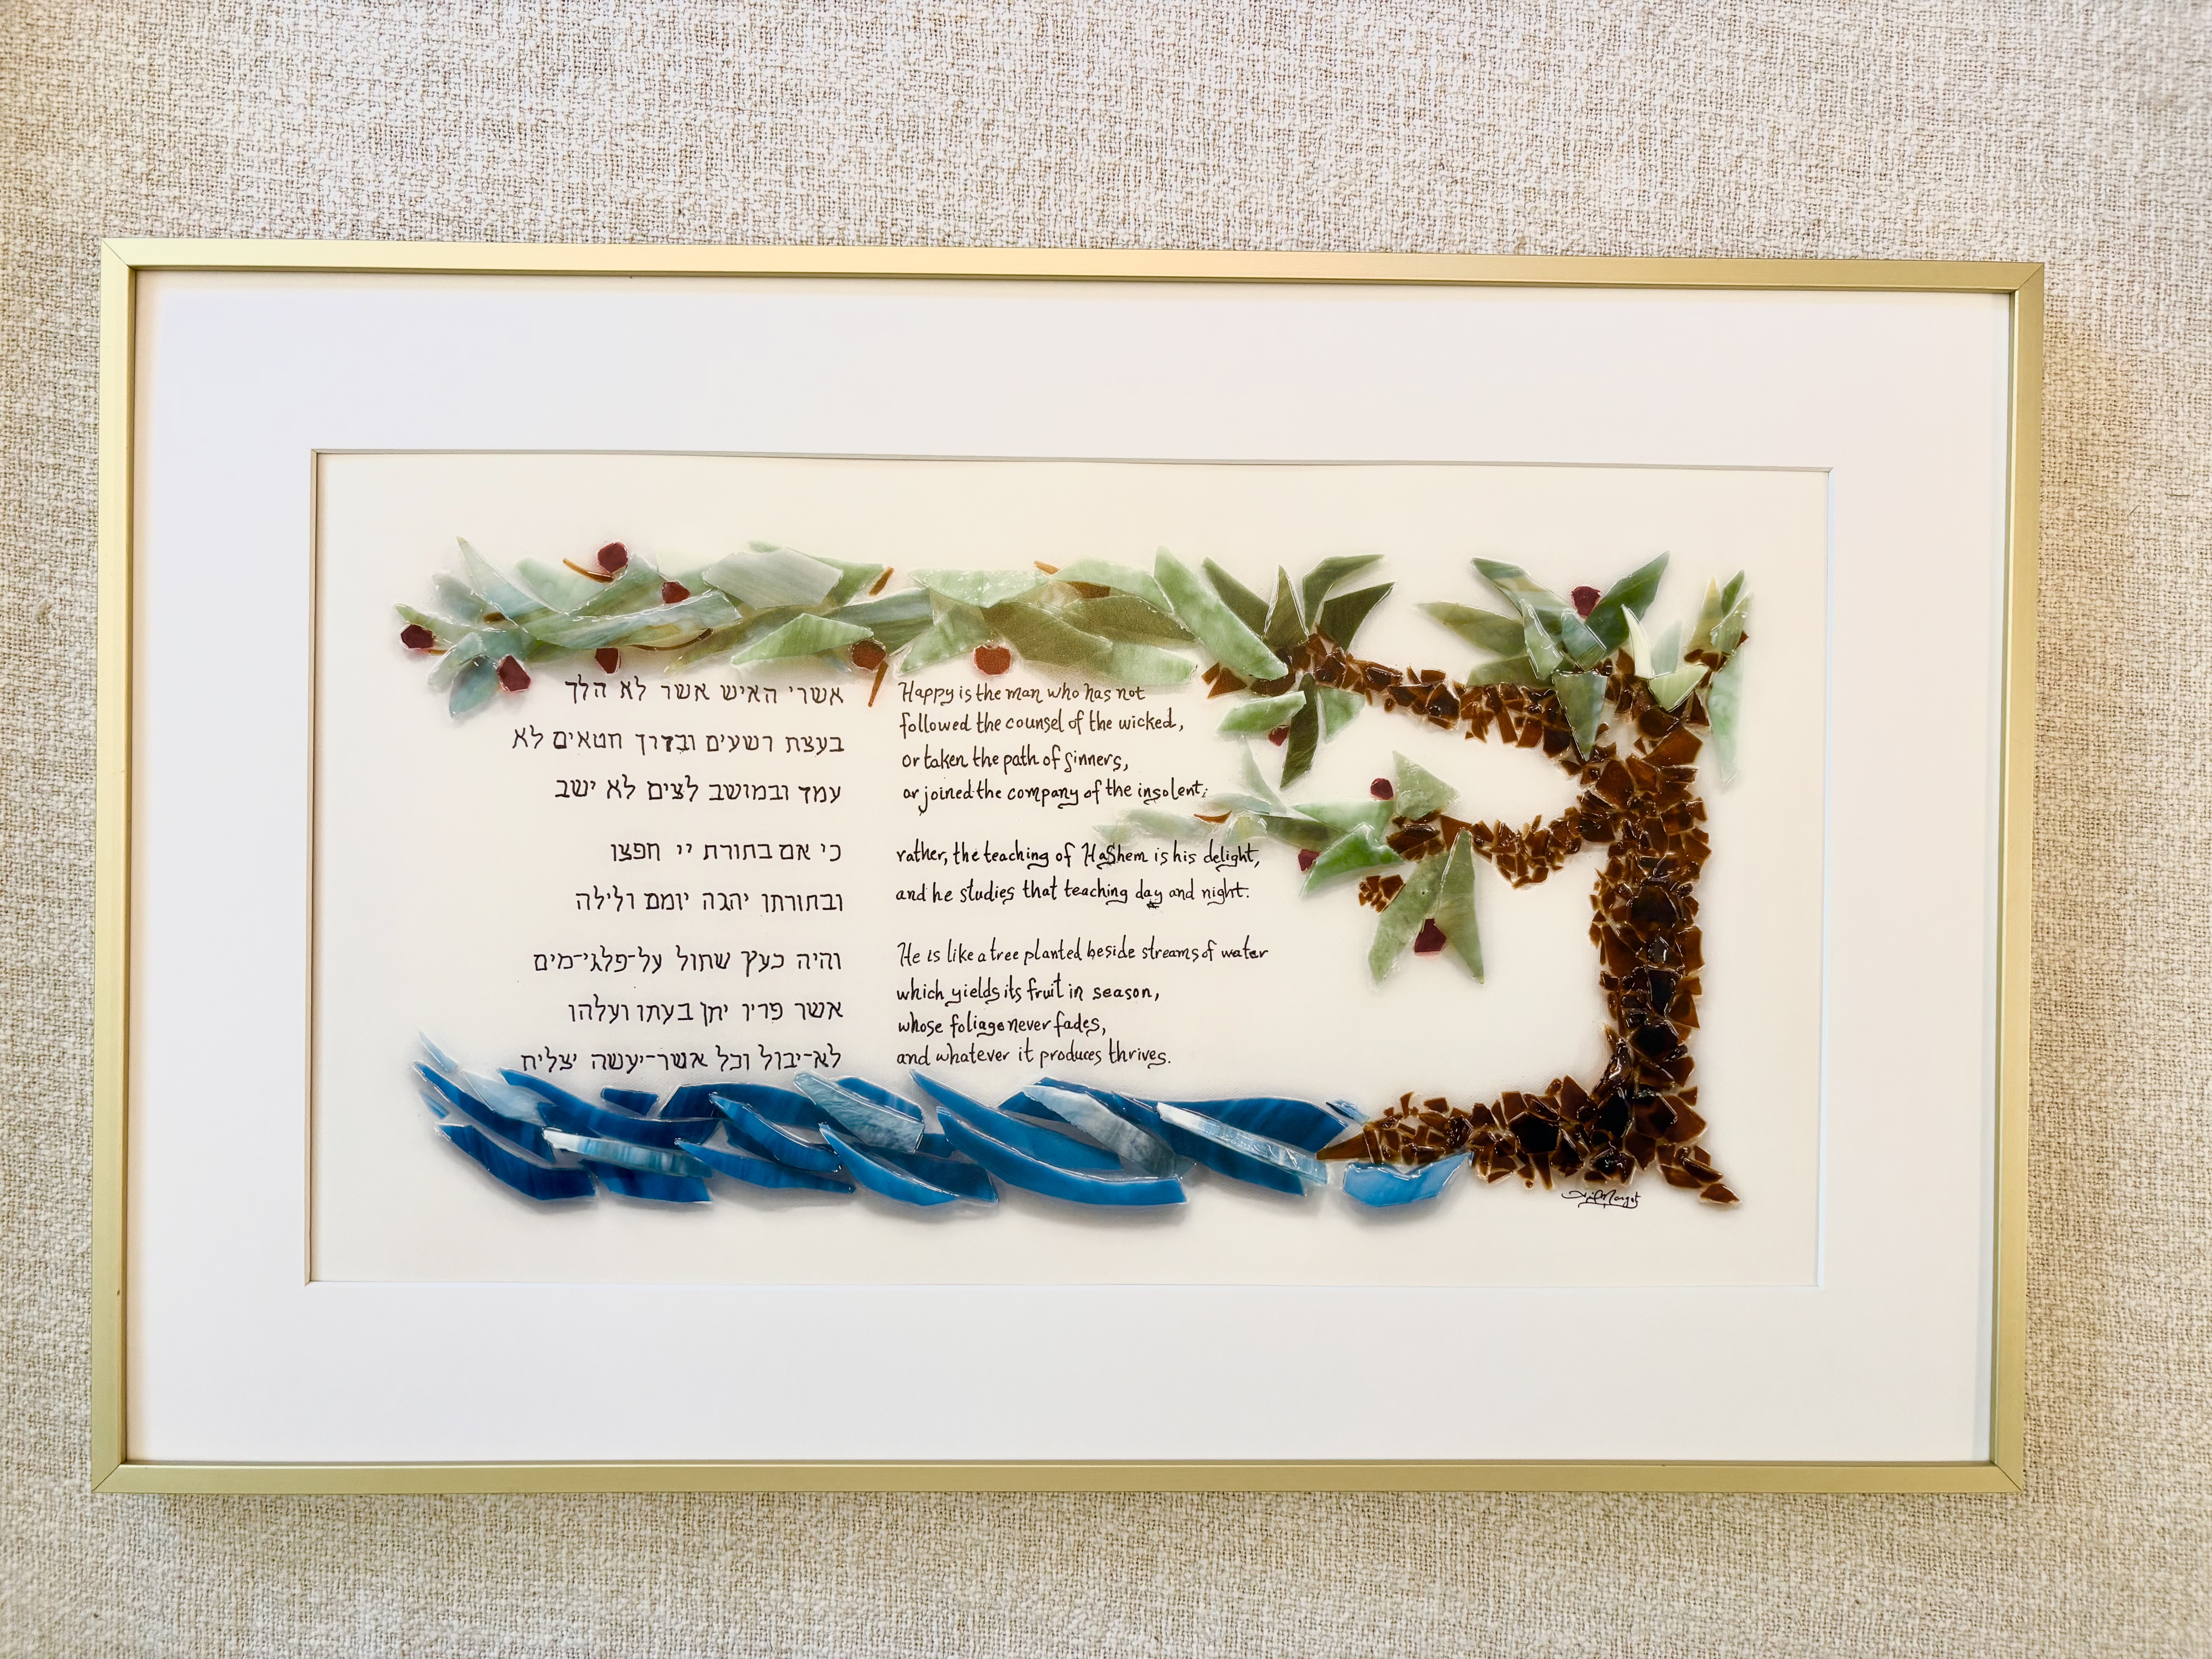 אשרי האיש אשר לא הלך
בעצת רשעים ובדרך חטאים לא
עמד ובמושב לצים לא ישב
כי אם בתורת יי חפצו
ובתורתו יהגה יומם ולילה
והיה כעץ שתול על-פלגי-מים
אשר פריו יתן בעתו ועלהו
לא-יבול וכל אשר-יעשה יצליח
Happy is the man who has not
followed the counsel of the wicked,
or taken the path of sinners,
or joined the company of the insolent;
rather, the teaching of HaShem is his delight,
and he studies that teaching day and night.
He is like a tree planted beside streams of water
which yields its fruit in season,
whose foliage never fades,
and whatever it produces thrives.